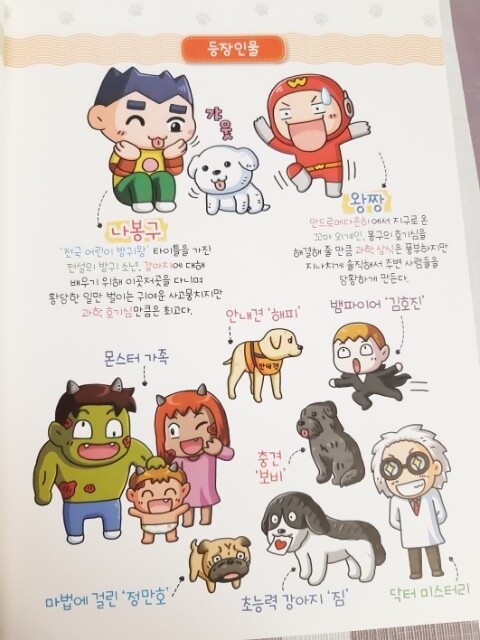 등장인물
갸웃
나봉구
'전국 어린이 방귀왕' 타이틀을 가진
전설의 방귀 소년. 강아지에 대해
배우기 위해 이곳저곳을 다니며
황당한 일만 벌이는 귀여운 사고뭉치지만
과학 호기심만큼은 최고다.
왕짱
안드로메다은하에서 지구로 온
꼬마 외계인. 봉구의 호기심을
해결해 줄 만큼 과학 상식은 풍부하지만
지나치게 솔직해서 주변 사람들을
당황하게 만든다.
안내견 '해피'
안내견
뱀파이어 '김호진'
몬스터 가족
충견
'보비'
마법에 걸린 '정만호'
초능력 강아지 '짐'
닥터 미스터리